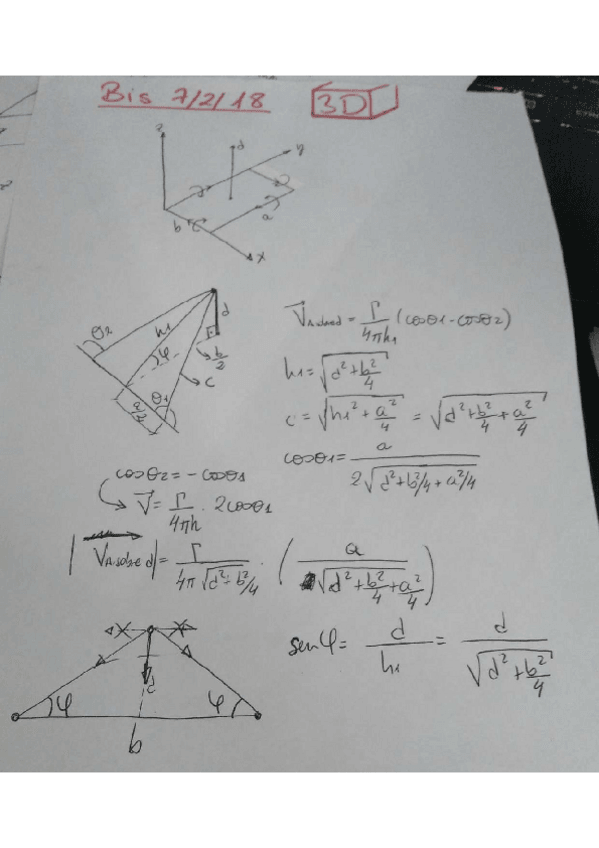 Bis 7/2/18 3D
z
d
y
b
a
x
d
θ2
h1
φ
b/2
c
θ1
a/2
V⃗A sobre d = Γ/4πh1 (cosθ1 - cosθ2)
h1 = √(d² + b²/4)
c = √(h1² + a²/4) = √(d² + b²/4 + a²/4)
cosθ1 = a / 2√(d² + b²/4 + a²/4)
cosθ2 = - cosθ1
V⃗ = Γ/4πh · 2cosθ1
|V⃗A sobre d| = Γ / 4π√(d² + b²/4) · (a / √(d² + b²/4 + a²/4))
sen φ = d/h1 = d / √(d² + b²/4)
φ
φ
b